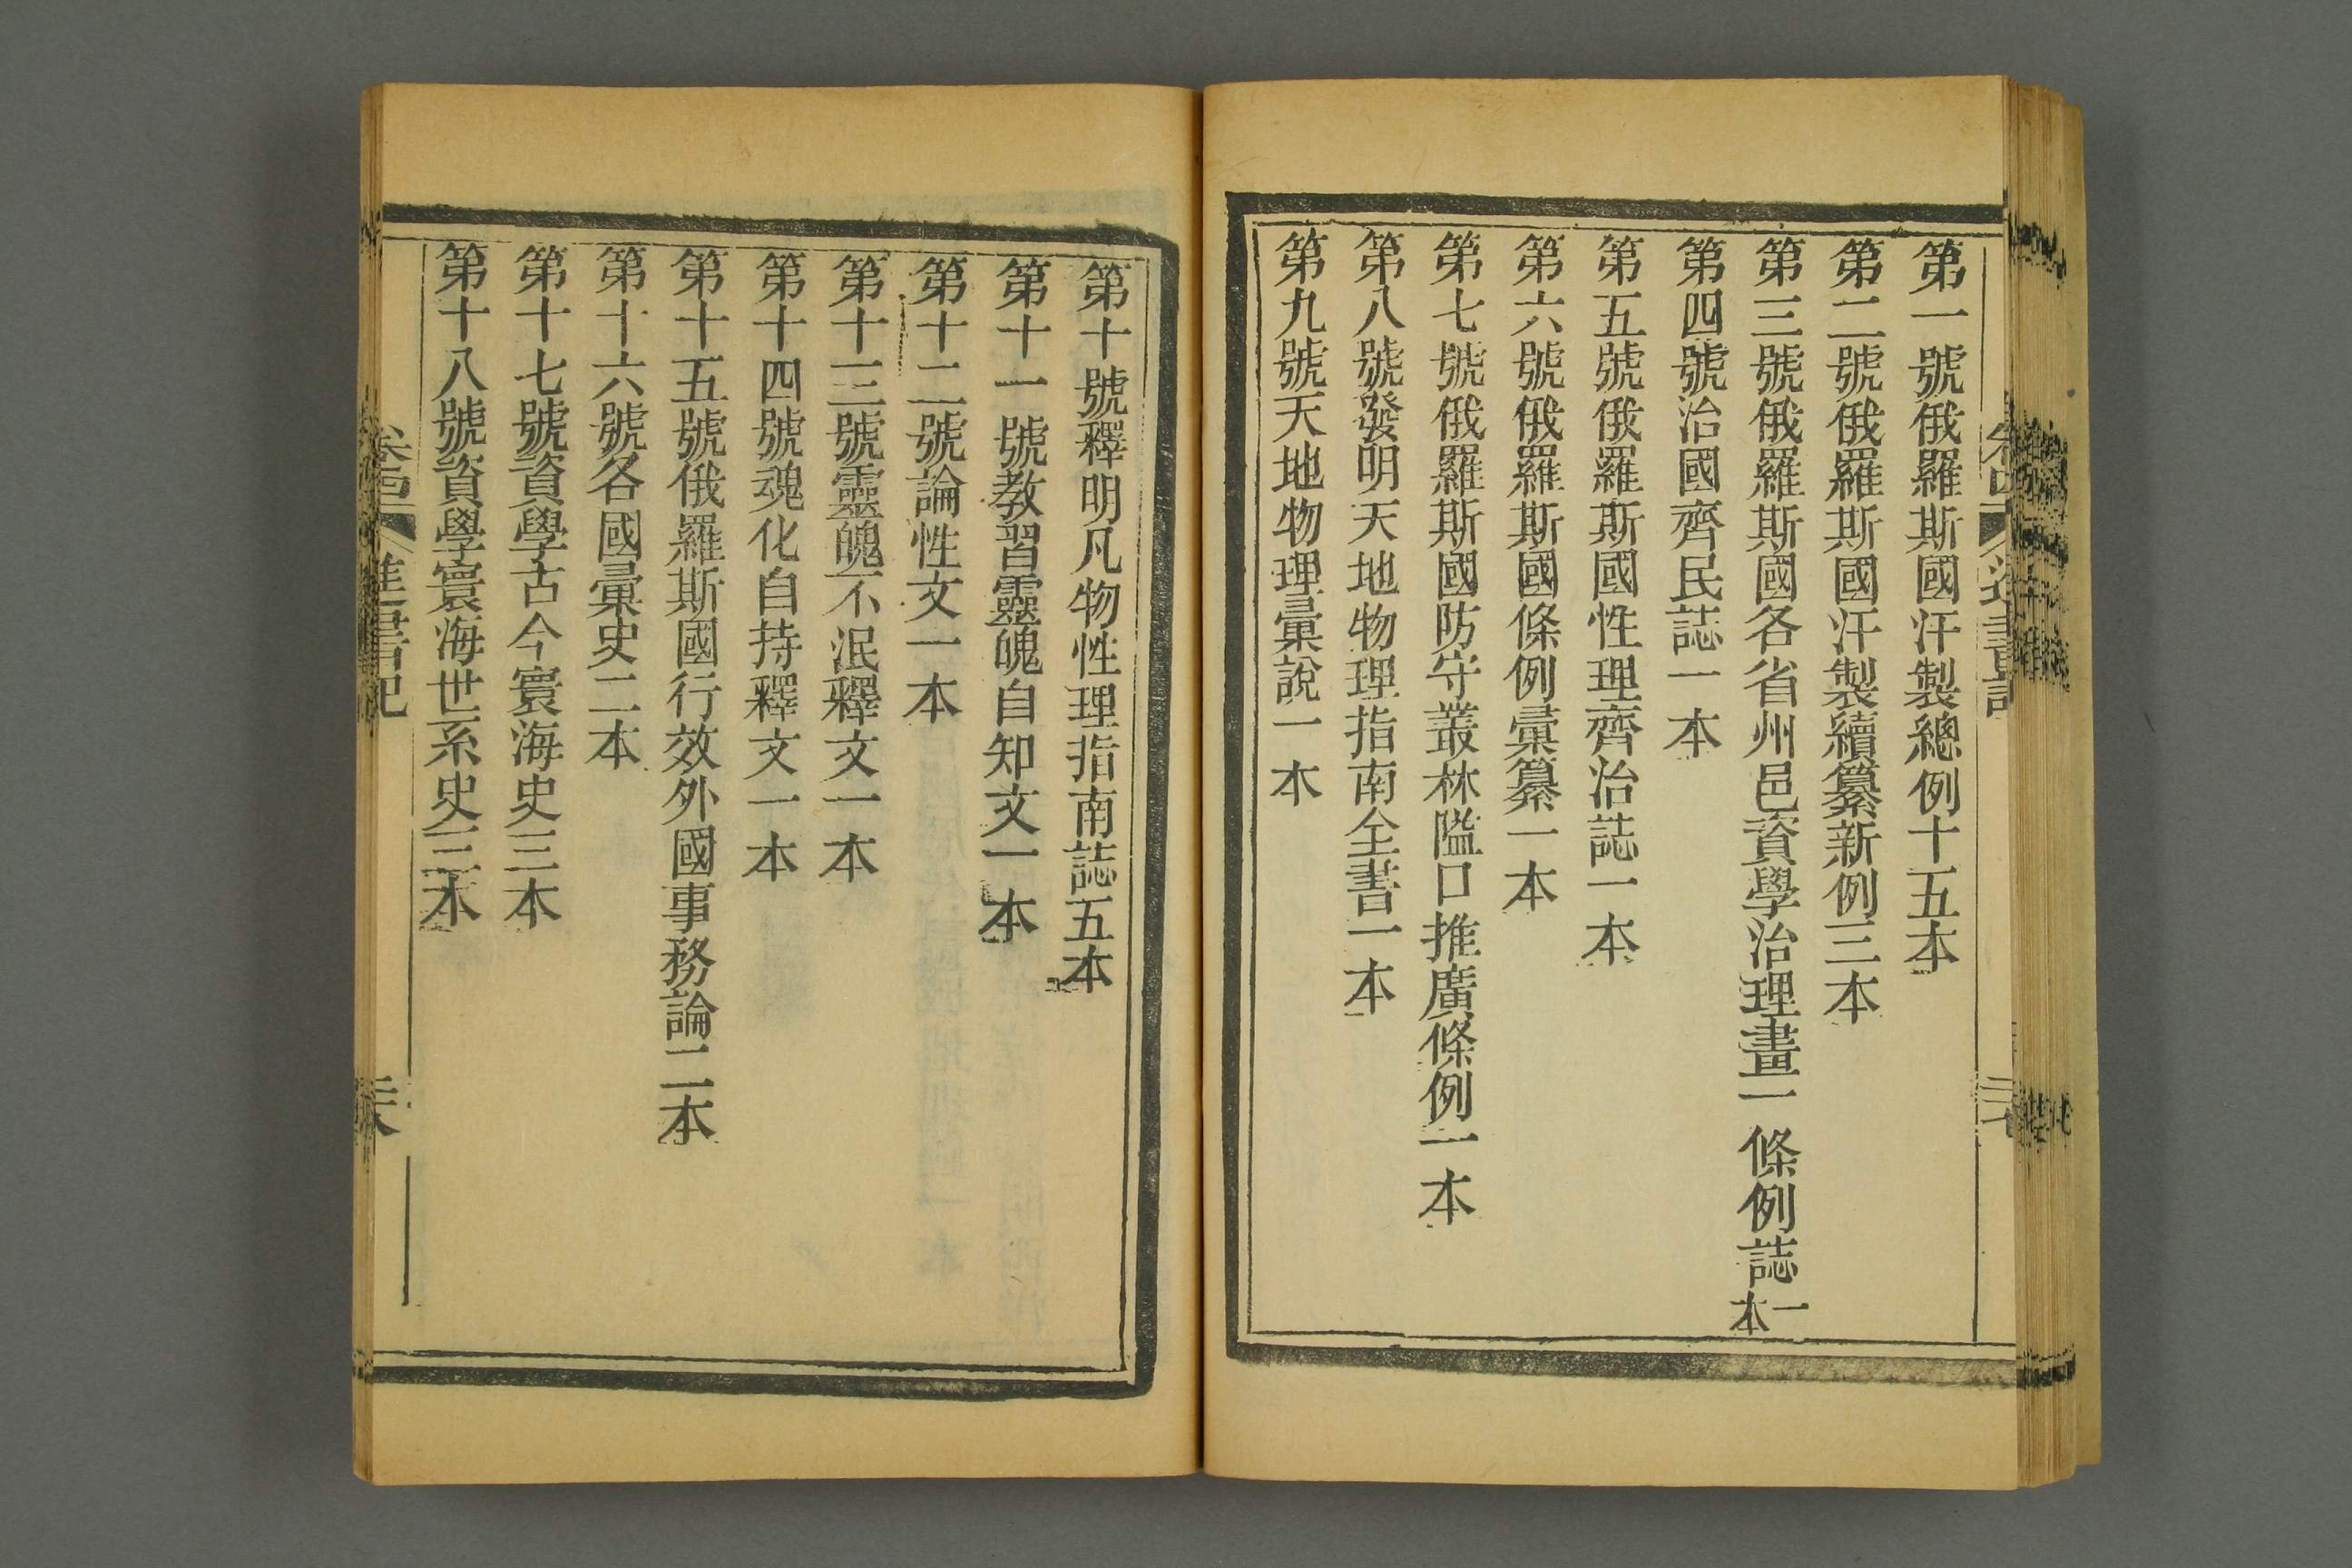 第一號俄羅斯國汗製總例十五本
第二號俄羅斯國汗製續纂新例三本
第三號俄羅斯國各省州邑資學治理畫一條例誌一本
第四號治國齊民誌一本
第五號俄羅斯國性理齊治誌一本
第六號俄羅斯國條例彙纂一本
第七號俄羅斯國防守叢林隘口推廣條例一本
第八號發明天地物理指南全書一本
第九號天地物理彙說一本
第十號釋明凡物性理指南誌五本
第十一號教習靈魄自知文一本
第十二號論性文一本
第十三號靈魄不泯釋文一本
第十四號魂化自持釋文一本
第十五號俄羅斯國行效外國事務論二本
第十六號各國彙史二本
第十七號資學古今寰海史三本
第十八號資學寰海世系史三本